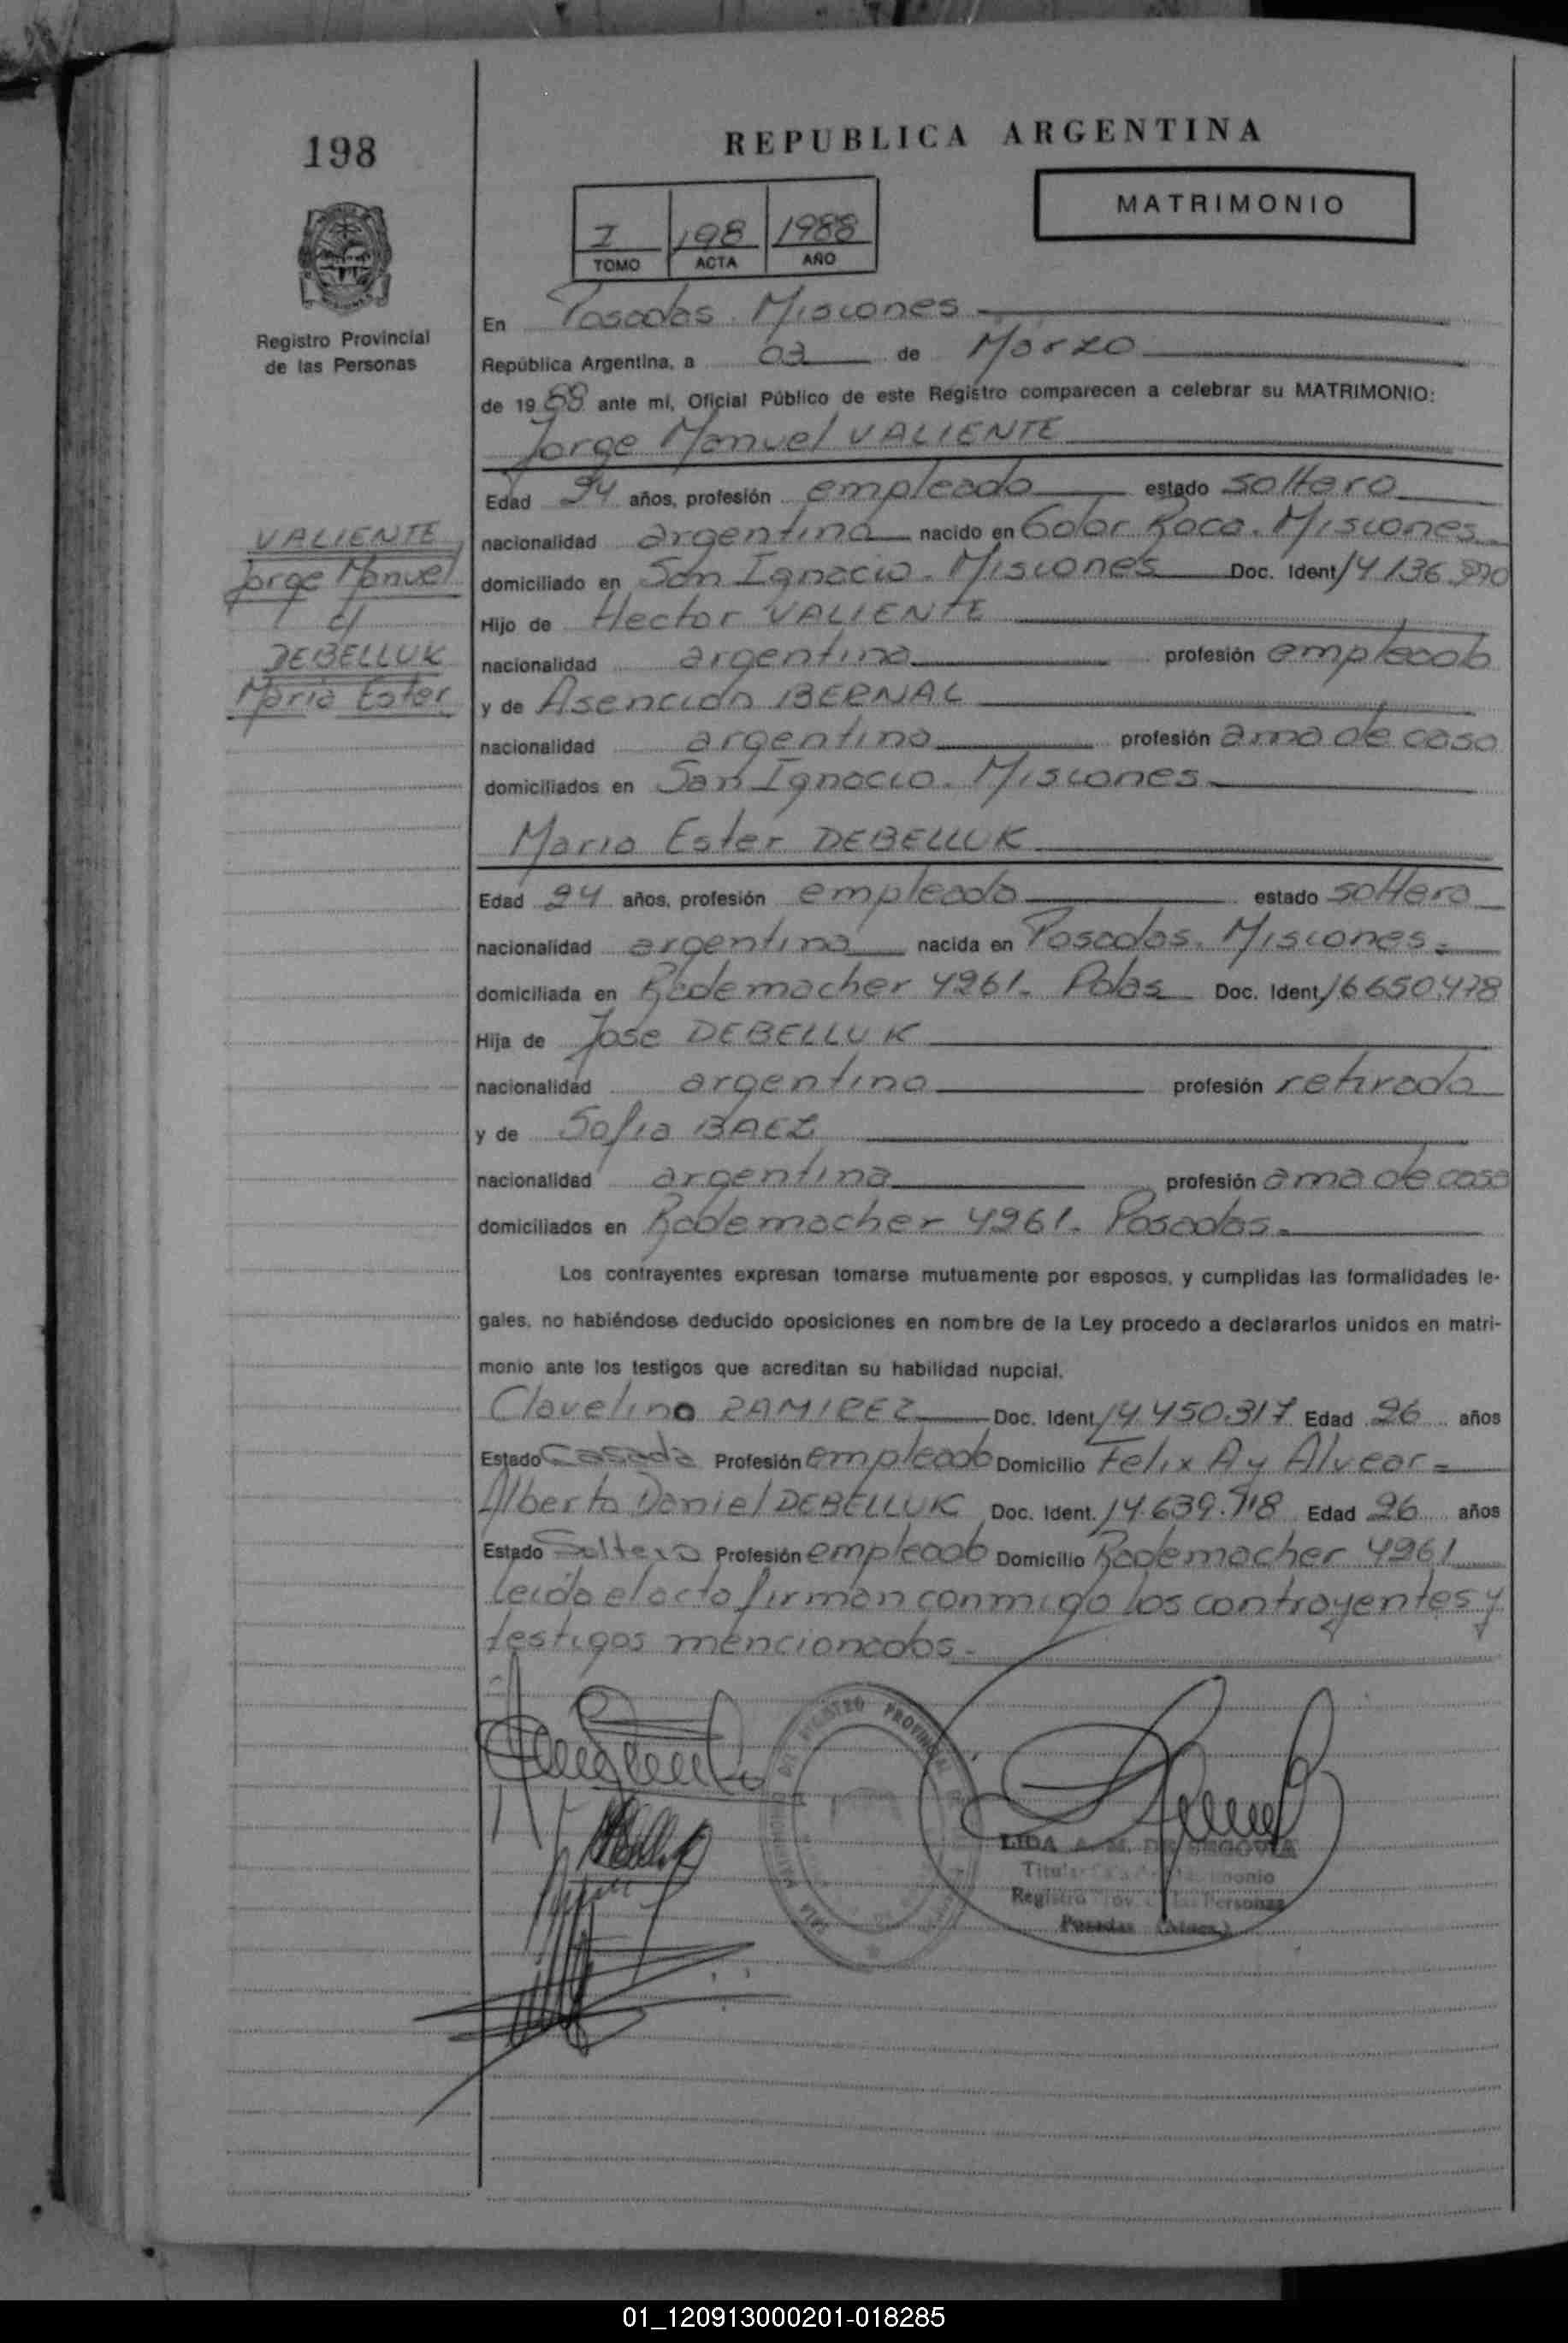 198
REPUBLICA ARGENTINA
MATRIMONIO
I 198 1988
TOMO ACTA AÑO
Registro Provincial
de las Personas
En Posadas. Misiones
República Argentina, a 03 de Marzo
de 1988 ante mí, Oficial Público de este Registro comparecen a celebrar su MATRIMONIO:
Jorge Manuel VALIENTE
Edad 24 años, profesión empleado estado soltero
VALIENTE
Jorge Manuel
c/
DEBELLUK
Maria Ester
nacionalidad argentina nacido en Gdor. Roca. Misiones
domiciliado en San Ignacio. Misiones Doc. Ident 14136.990
Hijo de Hector VALIENTE
nacionalidad argentina profesión empleado
y de Asención BERNAL
nacionalidad argentina profesión ama de casa
domiciliados en San Ignacio. Misiones
Maria Ester DEBELLUK
Edad 24 años, profesión empleada estado soltera
nacionalidad argentina nacida en Posadas. Misiones
domiciliada en Rademacher 4261. Pdas Doc. Ident. 16650.478
Hija de Jose DEBELLUK
nacionalidad argentina profesión retirado
y de Sofia BAEZ
nacionalidad argentina profesión ama de casa
domiciliados en Rademacher 4261. Posadas.
Los contrayentes expresan tomarse mutuamente por esposos, y cumplidas las formalidades le-
gales, no habiéndose deducido oposiciones en nombre de la Ley procedo a declararlos unidos en matri-
monio ante los testigos que acreditan su habilidad nupcial.
Clavelino RAMIREZ Doc. Ident. 14.450.317 Edad 26 años
Estado Casado Profesión empleado Domicilio Felix A y Alvear
Alberto Daniel DEBELLUK Doc. Ident. 14.639.918 Edad 26 años
Estado Soltero Profesión empleado Domicilio Rademacher 4261
leída el acta firman conmigo los contrayentes y
testigos mencionados.
REGISTRO PROVINCIAL
LIDA A. M. DE SEGOVIA
Registro Prov. de las Personas
Posadas (Mnes.)
01_120913000201-018285